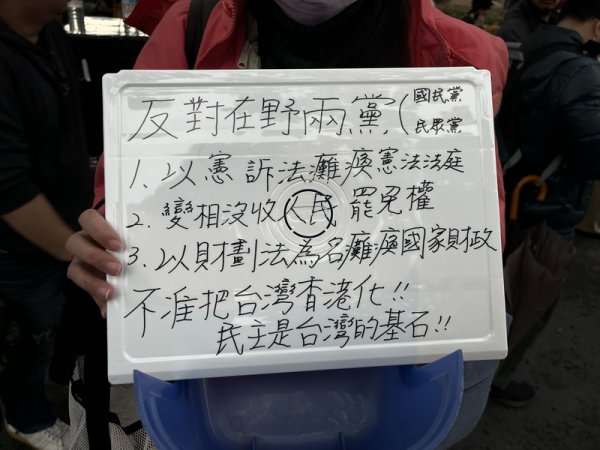 反對在野兩黨(國民黨
民眾黨
1. 以憲訴法癱瘓憲法法庭
2. 變相沒收人民罷免權
3. 以財劃法為名癱瘓國家財政
不准把台灣香港化!!
民主是台灣的基石!!